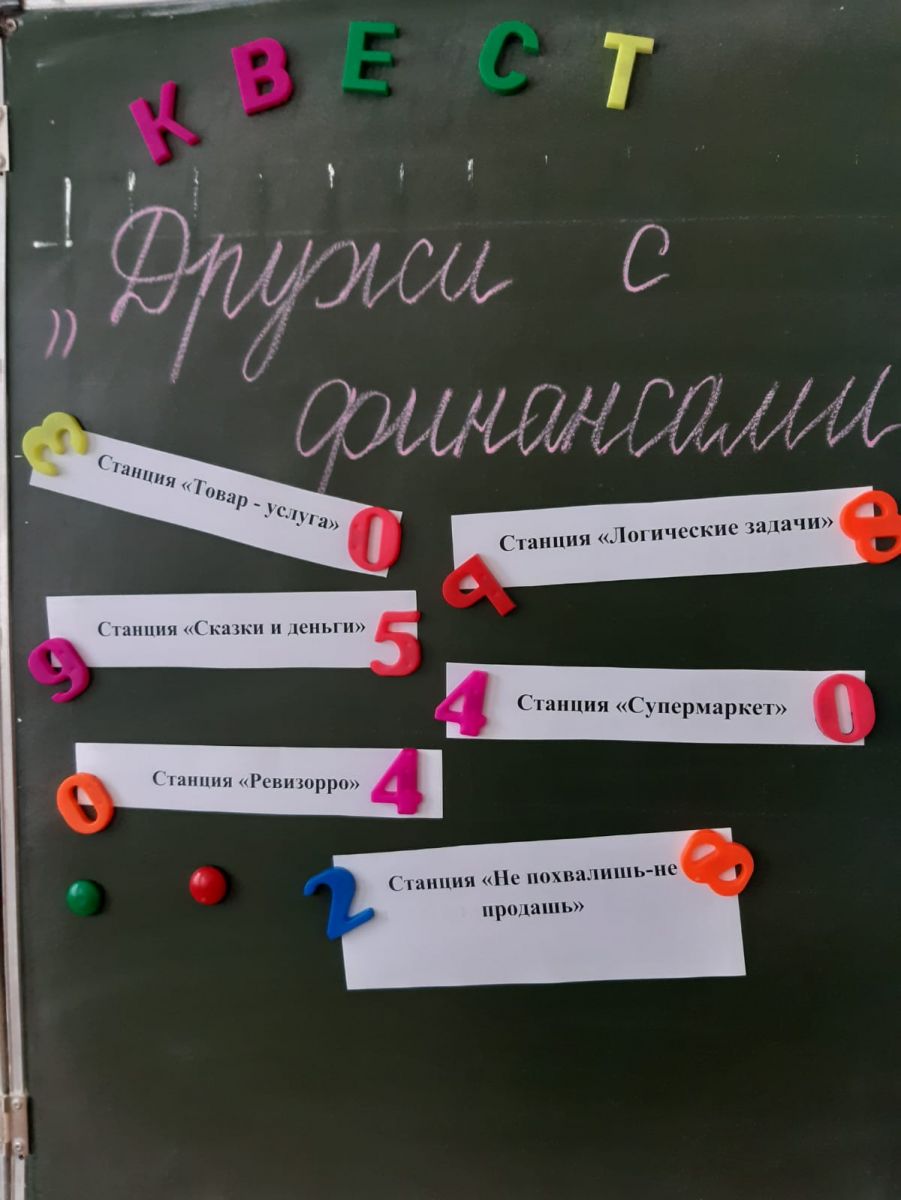 КВЕСТ
„Дружи с
финансами
3 Станция «Товар - услуга» 0
9 Станция «Логические задачи» 8
9 Станция «Сказки и деньги» 5
4 Станция «Супермаркет» 0
0 Станция «Ревизорро» 4
2 Станция «Не похвалишь-не 8
продашь»